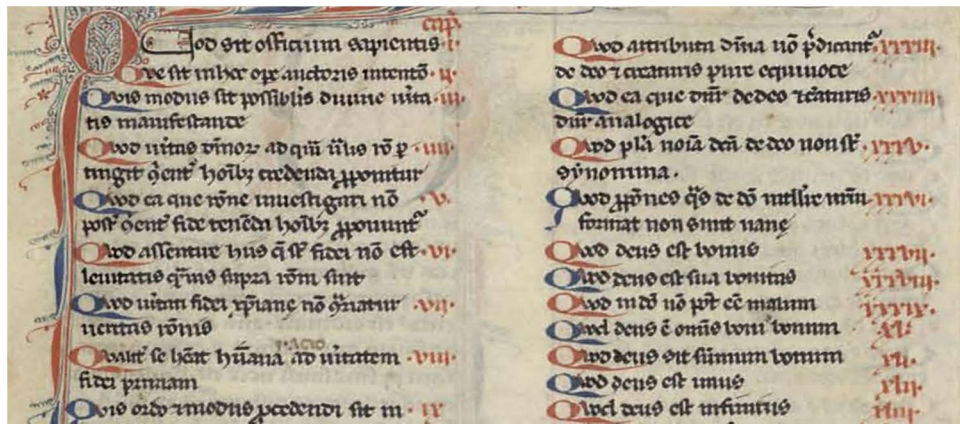 cap̄.
Qod sit officium sapientis · i ·
Que sit in hoc ope auctoris intentō · ii ·
Quis modus sit possibil̓s diuine u̓ita · iii ·
tis manifestande
Quod u̓itas diuinoꝝ ad quā n̄lis rō ꝑ · iiii ·
tingit ɋ̄uenīt hoībȝ credenda ꝓponitur
Quod ea que rōne inuestigari nō · v ·
poss̄t ɋ̄uenīt fide tenēda hoībȝ ꝓponunt᷑
Quod assentire hiis q̄ st̄ fidei nō est · vi ·
leuitatis qͣmuis supra rōm sint
Quod u̓itati fidei xp̄iane nō ɋ̄triatur · vii ·
ueritas rōnis
Qualit̓ se hēat hūana racio ad u̓itatem · viii ·
fidei primam
Quis ordo ⁊ modus ꝓcedendi sit in · ix
Quod attributa diīa nō p̄dicant᷑ · xxxiii ·
de deo ⁊ creaturis pure equiuoce
Quod ea que dnr̄ de deo ⁊ c̓aturis · xxxiiii ·
dnr̄ analogice
Quod pl̄a noīa dc̄a de deo non st̄ · xxxv ·
synonima .
Quod ꝓpōnes q̄s de dō intll̄s nr̄ · xxxvi ·
format non sunt uane
Quod deus est bonus xxxvii ·
Quod deus est sua bonitas xxxviii ·
Quod in dō nō pōt eē malum xxxix ·
Quod deus ē omīs boni bonum xl ·
Quod deus sit sūmum bonum xli ·
Quod deus est unus xlii ·
Quod deus est infinitus xliii ·